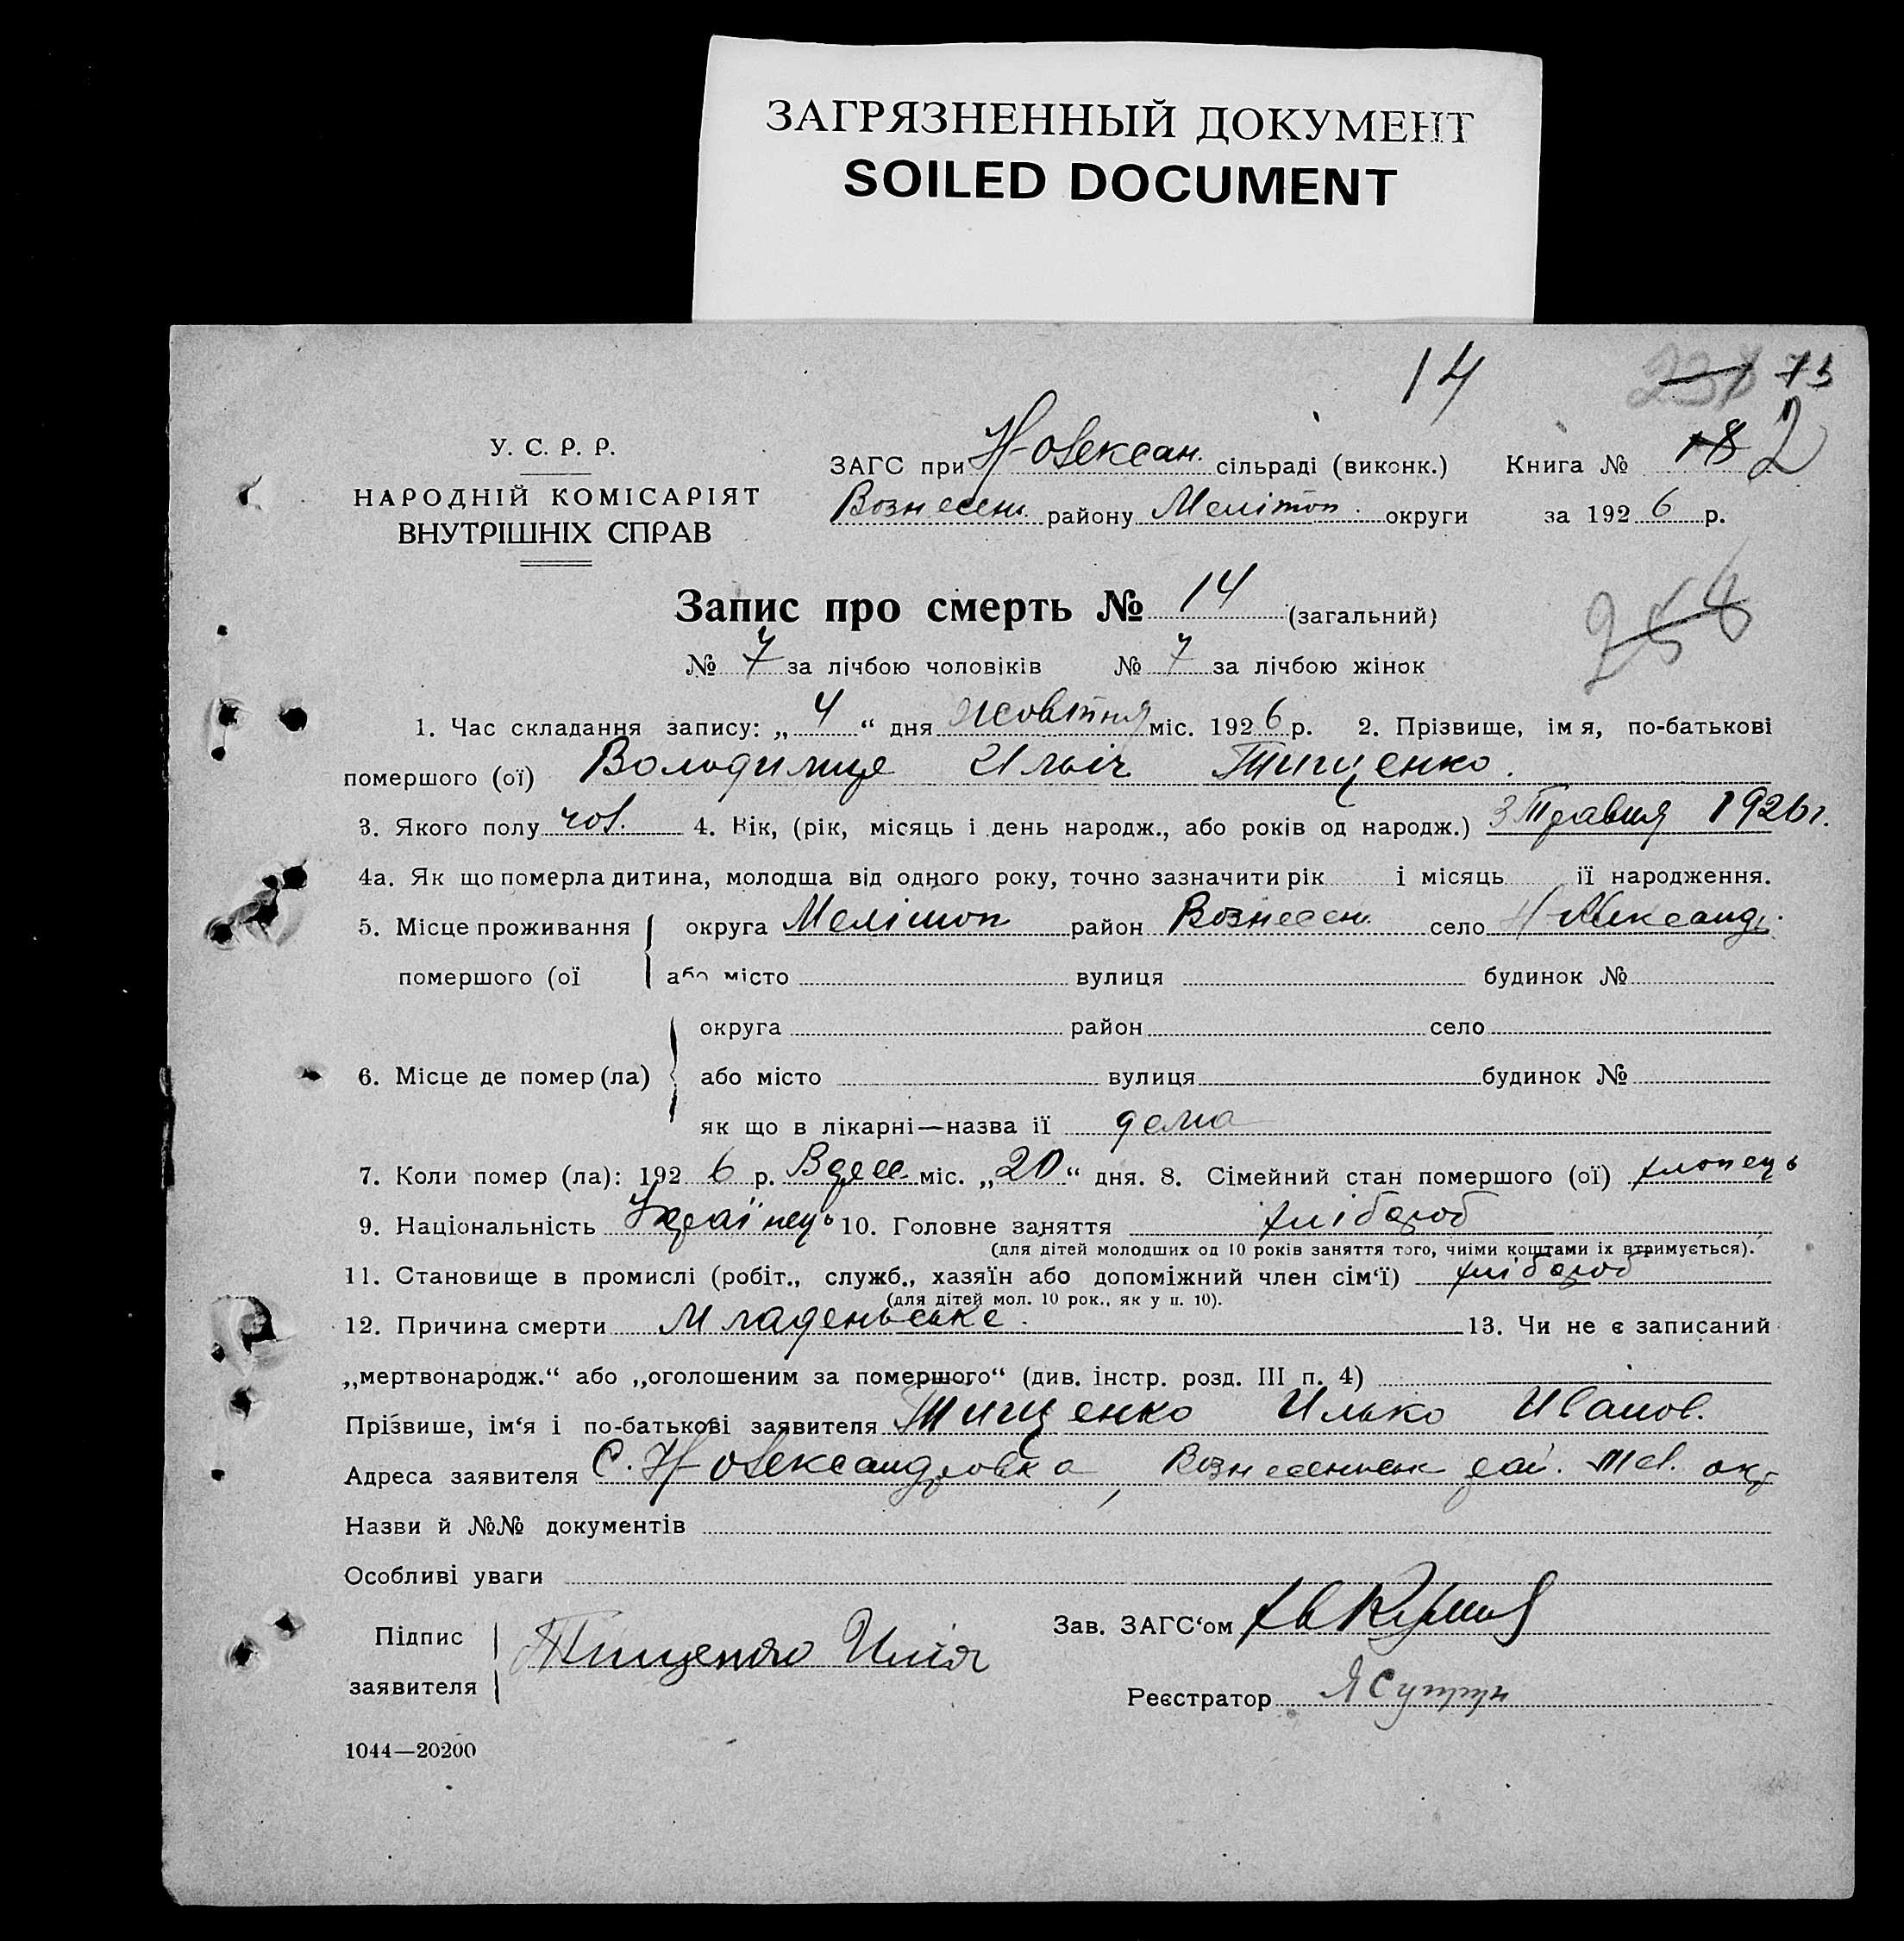 ЗАГРЯЗНЕННЫЙ ДОКУМЕНТ
SOILED DOCUMENT
14
73
У. С. Р. Р.
НАРОДНІЙ КОМІСАРІЯТ
ВНУТРІШНІХ СПРАВ
ЗАГС при Н-Олексан. сільраді (виконк.) Книга № 18 2
Вознесен. району Мелітоп. округи за 1926 р.
Запис про смерть № 14 (загальний)
№ 7 за лічбою чоловіків № 7 за лічбою жінок
1. Час складання запису: „4“ дня жовтня міс. 1926 р. 2. Прізвище, імя, по-батькові
помершого (ої) Володимир Ильіч Тищенко.
3. Якого полу чол. 4. Вік, (рік, місяць і день народж., або років од народж.) 3 Травня 1926 г.
4а. Як що померла дитина, молодша від одного року, точно зазначити рік і місяць її народження.
5. Місце проживання округа Меліттоп район Вознесен. село Н-Александ.
помершого (ої або місто вулиця будинок №
округа район село
6. Місце де помер (ла) або місто вулиця будинок №
як що в лікарні—назва її дома
7. Коли помер (ла): 1926 р. міс. „20“ дня. 8. Сімейний стан помершого (ої) хлопець
9. Національність Українець 10. Головне заняття хлібороб
(для дітей молодших од 10 років заняття того, чиїми коштами їх втримується).
11. Становище в промислі (робіт., служб., хазяїн або допоміжний член сім‘ї) хлібороб
(для дітей мол. 10 рок., як у п. 10).
12. Причина смерти Младеньське. 13. Чи не є записаний
„мертвонародж.“ або „оголошеним за померщого“ (див. інстр. розд. III п. 4)
Прізвище, ім‘я і по-батькові заявителя Тищенко Илько Иванов.
Адреса заявителя С. Н-Олександровка, Вознесенськ рай. Мел. окр
Назви й №№ документів
Особливі уваги
Підпис заявителя Тищенко Илія
Зав. ЗАГС‘ом
Реєстратор Я Супрун
1044—20200